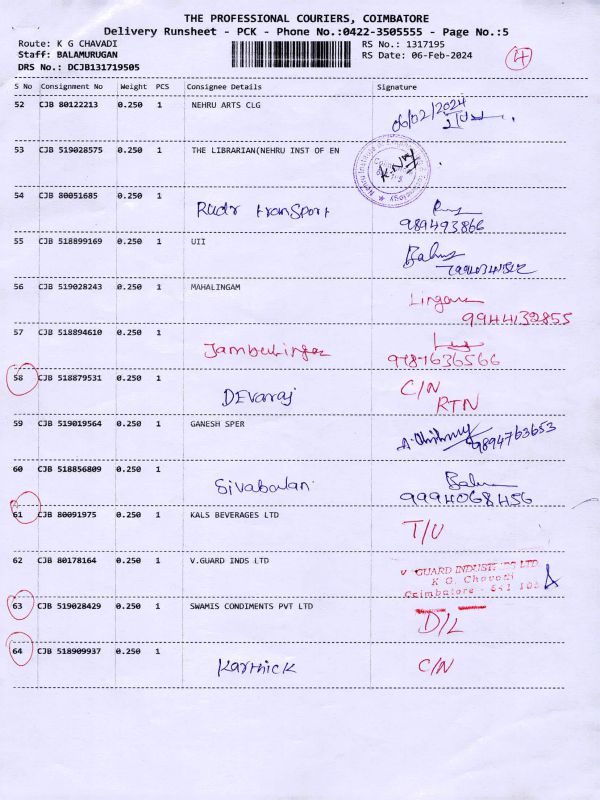 THE PROFESSIONAL COURIERS, COIMBATORE
Delivery Runsheet - PCK - Phone No.:0422-3505555 - Page No.:5
Route: K G CHAVADI
RS No.: 1317195
Staff: BALAMURUGAN
RS Date: 06-Feb-2024
DRS No.: DCJB131719505
4
S No Consignment No Weight PCS Consignee Details Signature
52 CJB 80122213 0.250 1 NEHRU ARTS CLG
06/02/2024
53 CJB 519028575 0.250 1 THE LIBRARIAN(NEHRU INST OF EN
54 CJB 80051685 0.250 1
Rudr transport
989493866
55 CJB 518899169 0.250 1 UII
56 CJB 519028243 0.250 1 MAHALINGAM
9944132855
57 CJB 518894610 0.250 1
9787636566
58 CJB 518879531 0.250 1
DEvaraj
C/N
RTN
59 CJB 519019564 0.250 1 GANESH SPER
9894763653
60 CJB 518856809 0.250 1
Sivabalan
9994068456
61 CJB 80091975 0.250 1 KALS BEVERAGES LTD
T/U
62 CJB 80178164 0.250 1 V.GUARD INDS LTD
V GUARD INDUSTRIES LTD.
K G. Chavadi
Coimbatore - 641 105
63 CJB 519028429 0.250 1 SWAMIS CONDIMENTS PVT LTD
D/L
64 CJB 518909937 0.250 1
Karthick
C/N